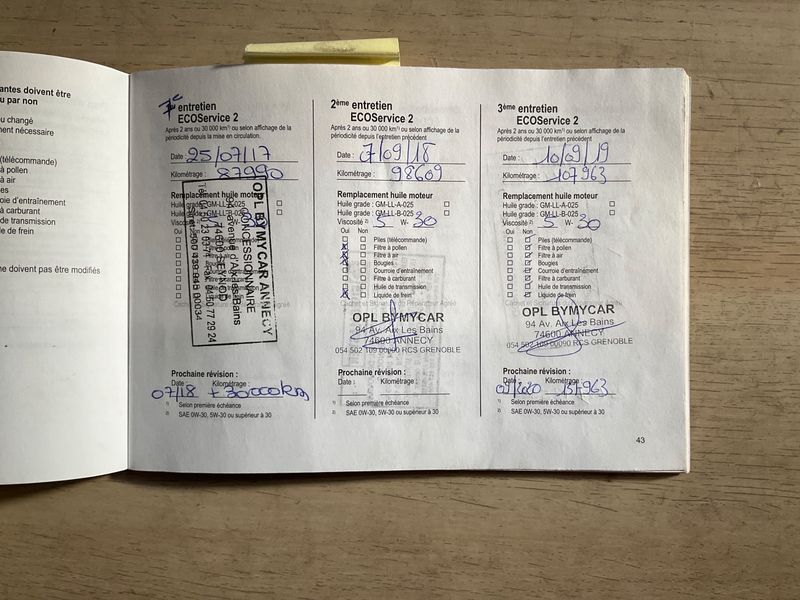 antes doivent être
u par non
u changé
ment nécessaire
(télécommande)
à pollen
à air
es
oie d'entraînement
à carburant
de transmission
le de frein
ne doivent pas être modifiés
entretien
ECOService 2
Après 2 ans ou 30 000 km¹⁾ ou selon affichage de la
périodicité depuis la mise en circulation.
Date : 25/07/17
Kilométrage : 87990
Remplacement huile moteur
Huile grade : GM-LL-A-025
Huile grade : GM-LL-B-025
Viscosité 30
Oui Non
OPL BYMYCAR ANNECY
CONCESSIONNAIRE
94 avenue d'Aix-les-Bains
74600 SEYNOD
Prochaine révision :
Date : Kilométrage :
07/18 + 30000km
¹⁾ Selon première échéance
²⁾ SAE 0W-30, 5W-30 ou supérieur à 30
2ème entretien
ECOService 2
Après 2 ans ou 30 000 km¹⁾ ou selon affichage de la
périodicité depuis l'entretien précédent
Date : 7/09/18
Kilométrage : 98609
Remplacement huile moteur
Huile grade : GM-LL-A-025
Huile grade : GM-LL-B-025
Viscosité ²⁾ 5 W- 30
Oui Non
Piles (télécommande)
Filtre à pollen
Filtre à air
Bougies
Courroie d'entraînement
Filtre à carburant
Huile de transmission
Liquide de frein
OPL BYMYCAR
94 Av. Aix Les Bains
74600 ANNECY
054 502 109 00090 RCS GRENOBLE
Prochaine révision :
Date : Kilométrage :
¹⁾ Selon première échéance
²⁾ SAE 0W-30, 5W-30 ou supérieur à 30
3ème entretien
ECOService 2
Après 2 ans ou 30 000 km¹⁾ ou selon affichage de la
périodicité depuis l'entretien précédent
Date : 10/09/19
Kilométrage : 107963
Remplacement huile moteur
Huile grade : GM-LL-A-025
Huile grade : GM-LL-B-025
Viscosité ²⁾ 5 W- 30
Oui Non
Piles (télécommande)
Filtre à pollen
Filtre à air
Bougies
Courroie d'entraînement
Filtre à carburant
Huile de transmission
Liquide de frein
OPL BYMYCAR
94 Av. Aix Les Bains
74600 ANNECY
054 502 109 00090 RCS GRENOBLE
Prochaine révision :
Date : Kilométrage :
09/2020
¹⁾ Selon première échéance
²⁾ SAE 0W-30, 5W-30 ou supérieur à 30
43